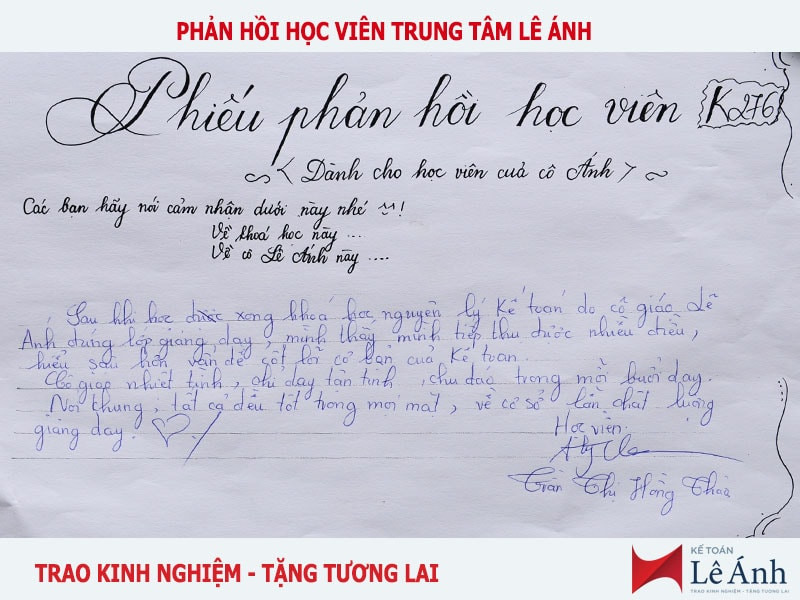 PHẢN HỒI HỌC VIÊN TRUNG TÂM LÊ ÁNH
Phiếu phản hồi học viên K276
Dành cho học viên cuả cô Ánh
Các bạn hãy nói cảm nhận dưới này nhé !
Về khoá học này ...
Về cô Lê Ánh này ....
Sau khi học được xong khoá học nguyên lý Kế toán do cô giáo Lê
Ánh đứng lớp giảng dạy, mình thấy mình tiếp thu được nhiều điều,
hiểu sâu hơn vấn đề cốt lõi cơ bản của Kế toán.
Cô giáo nhiệt tình, chỉ dạy tận tình, chu đáo trong mỗi buổi dạy.
Nói chung, tất cả đều tốt trong mọi mặt, về cơ sở lẫn chất lượng
giảng dạy.
Học viên
Trần Thị Hồng
TRAO KINH NGHIỆM - TẶNG TƯƠNG LAI
KẾ TOÁN
Lê Ánh
TRAO KINH NGHIỆM - TẶNG TƯƠNG LAI